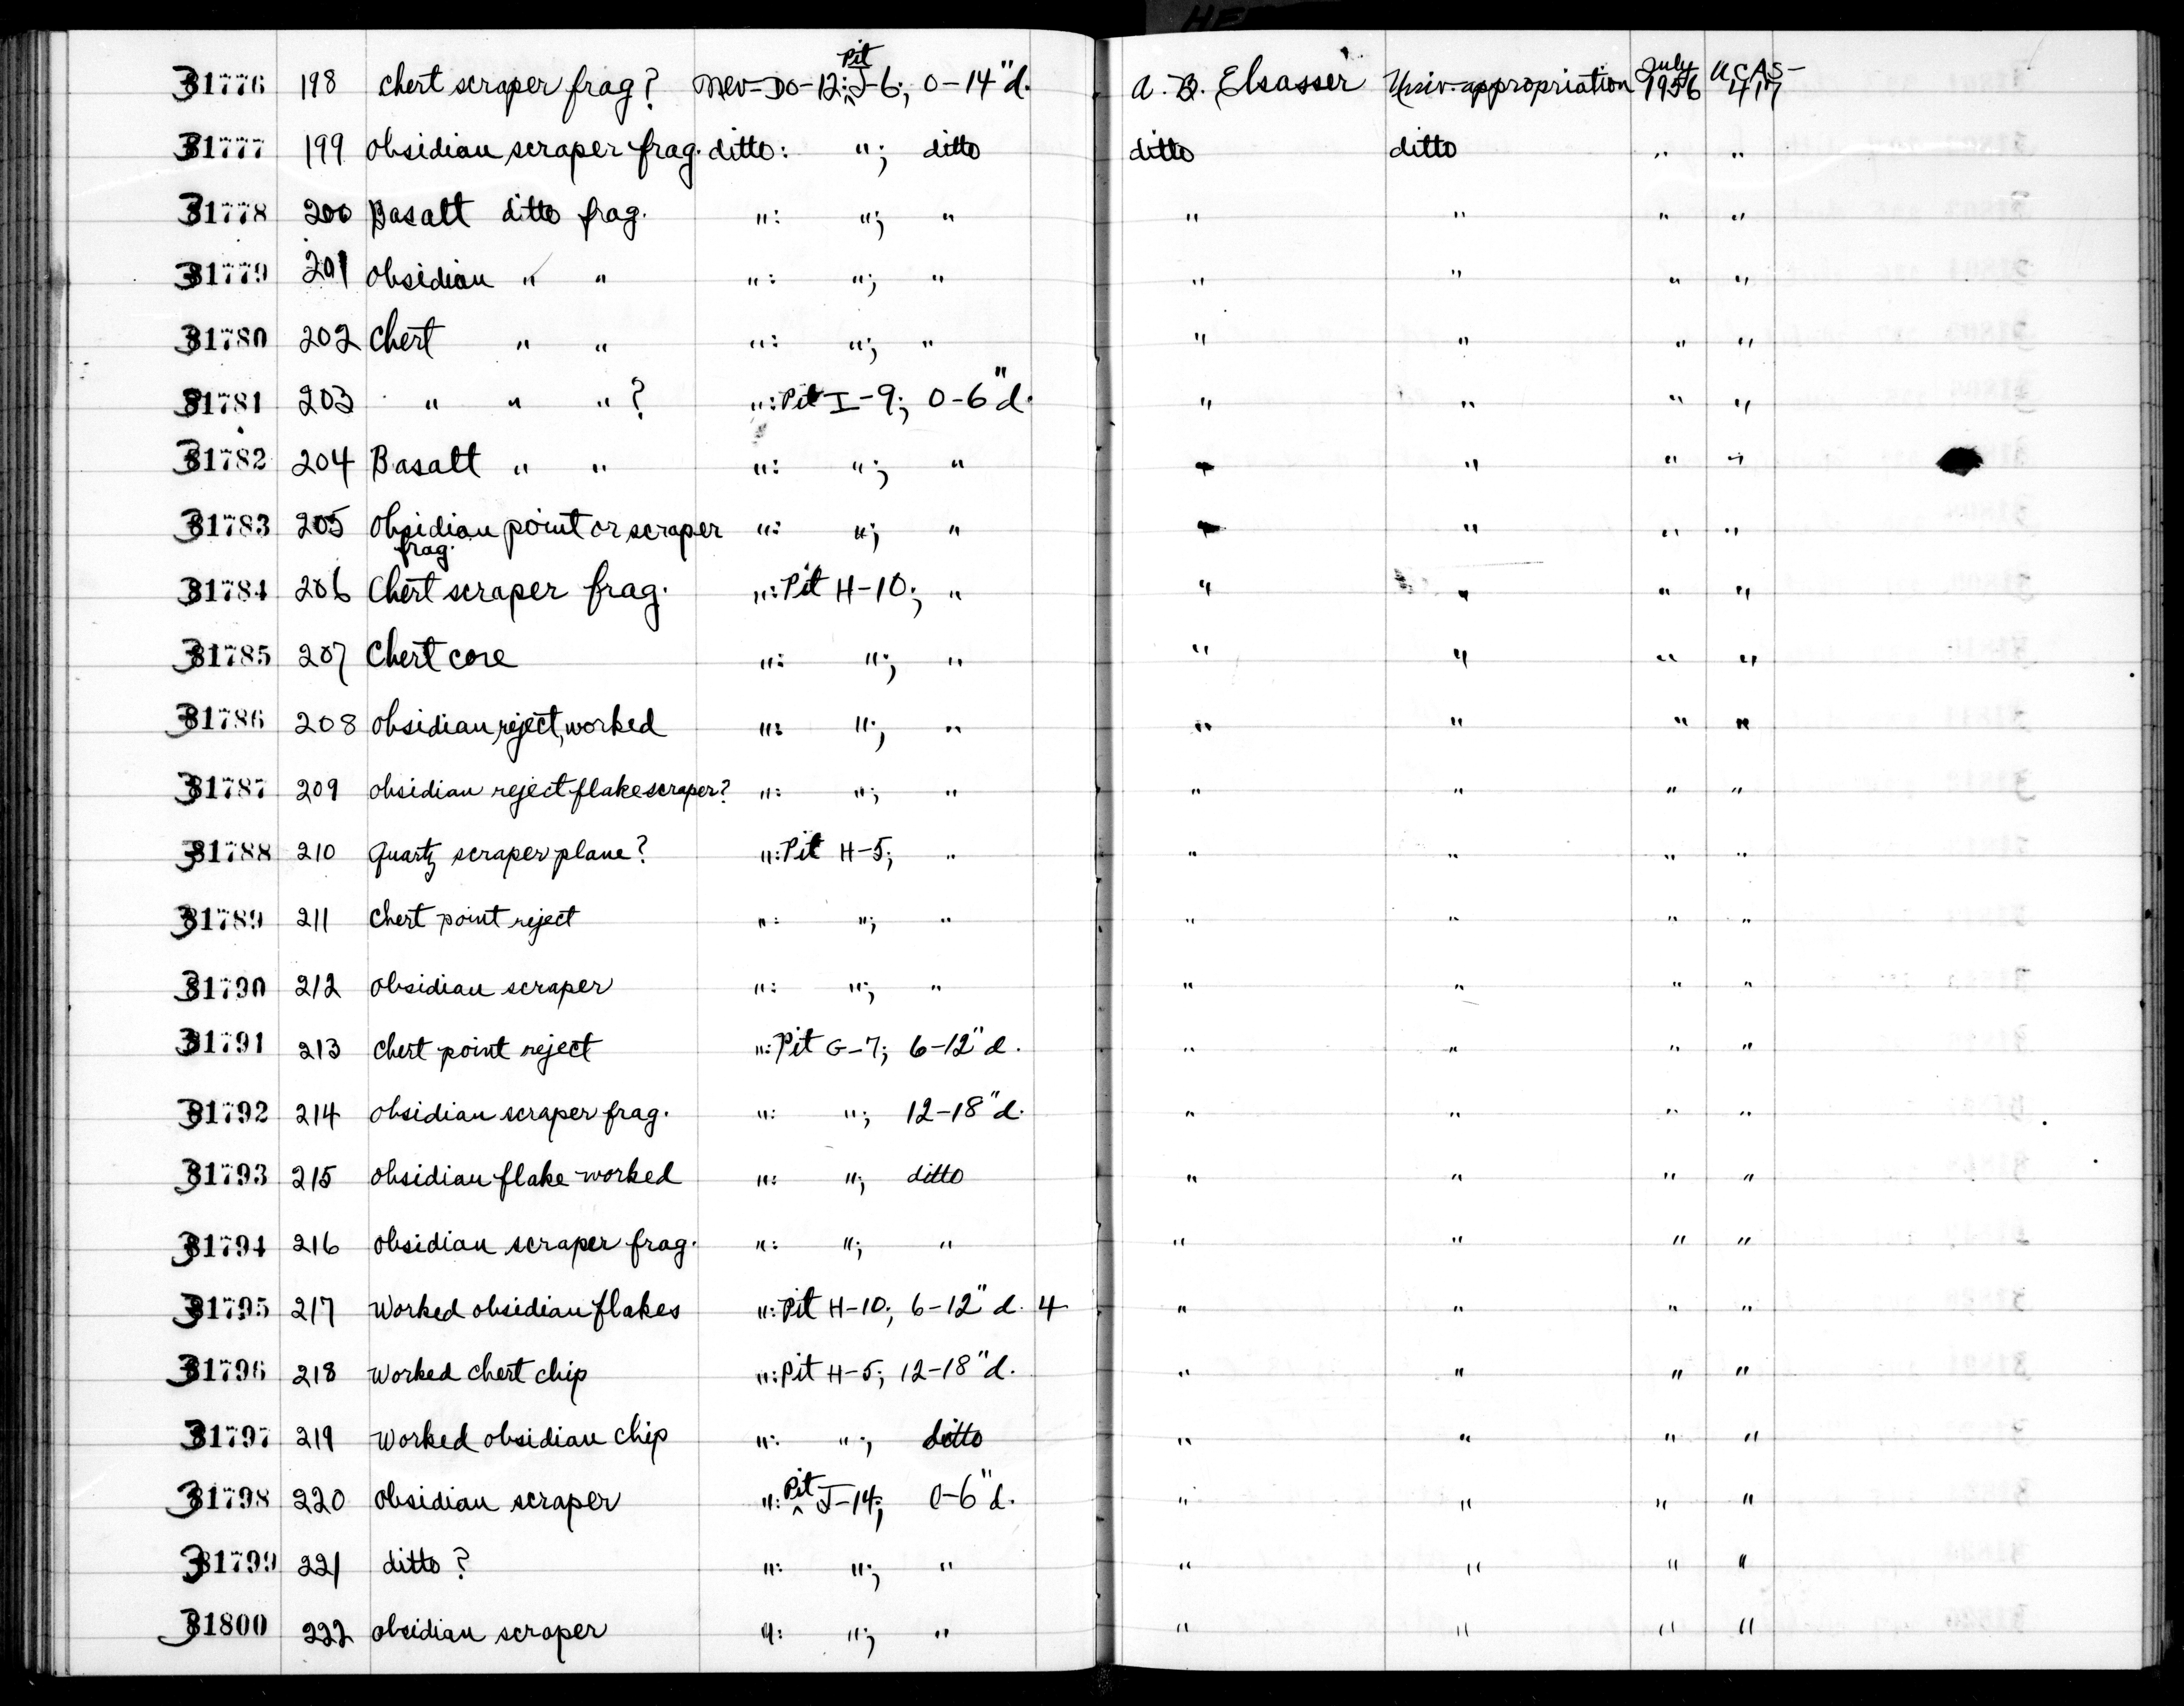 31776 198 chert scraper frag? Nev-Do-12: Pit J-6; 0-14"d. A. B. Elsasser Univ. appropriation July 1956 UCAS-417
31777 199 obsidian scraper frag. ditto: "; ditto ditto ditto " "
31778 200 Basalt ditto frag. ": "; " " " " "
31779 201 obsidian " " ": "; " " " " "
31780 202 Chert " " ": "; " " " " "
31781 203 " " " ? ": Pit I-9; 0-6"d. " " " "
31782 204 Basalt " " ": "; " " " " "
31783 205 Obsidian point or scraper frag. ": "; " " " " "
31784 206 Chert scraper frag. ": Pit H-10; " " " " "
31785 207 Chert core ": "; " " " " "
31786 208 obsidian reject, worked ": "; " " " " "
31787 209 obsidian reject flake scraper? ": "; " " " " "
31788 210 quartz scraper plane? ": Pit H-5; " " " " "
31789 211 chert point reject ": "; " " " " "
31790 212 obsidian scraper ": "; " " " " "
31791 213 chert point reject ": Pit G-7; 6-12"d. " " " "
31792 214 obsidian scraper frag. ": "; 12-18"d. " " " "
31793 215 obsidian flake worked ": "; ditto " " " "
31794 216 obsidian scraper frag. ": "; " " " " "
31795 217 Worked obsidian flakes ": Pit H-10; 6-12"d. 4 " " " "
31796 218 Worked chert chip ": Pit H-5; 12-18"d. " " " "
31797 219 Worked obsidian chip ": "; ditto " " " "
31798 220 obsidian scraper ": Pit J-14; 0-6"d. " " " "
31799 221 ditto? ": "; " " " " "
31800 222 obsidian scraper ": "; " " " " "